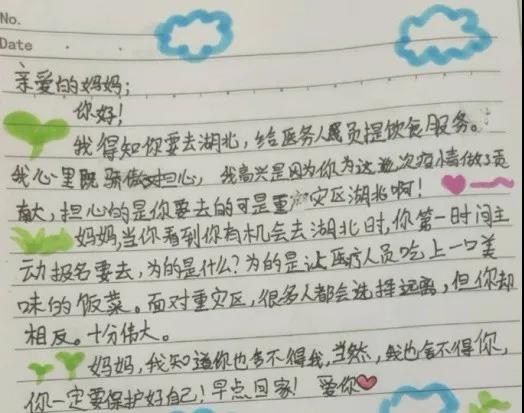 No.
Date
亲爱的妈妈:
你好!
我得知你要去湖北,给医务人员提饮食服务。
我心里既骄傲又担心,我高兴是因为你为这次疫情做了贡
献,担心的是你要去的可是重灾区湖北啊!
妈妈,当你看到你有机会去湖北时,你第一时间主
动报名要去,为的是什么?为的是让医疗人员吃上一口美
味的饭菜。面对重灾区,很多人都会选择远离,但你却
相反。十分伟大。
妈妈,我知道你也舍不得我,当然,我也舍不得你,
你一定要保护好自己!早点回家!爱你